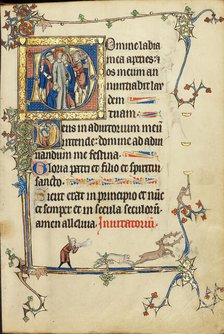 Domine labia
mea aperies:
os meum an
nuntiabit lau
tuam.
Deus in adiutorium meū
intende: domine ad adiu
uandum me festina.
Gloria patri et filio et spiritui
sancto.
Sicut erat in principio et nūc
et semper et in secula seculorū
amen alleluia. Inuitatoriū